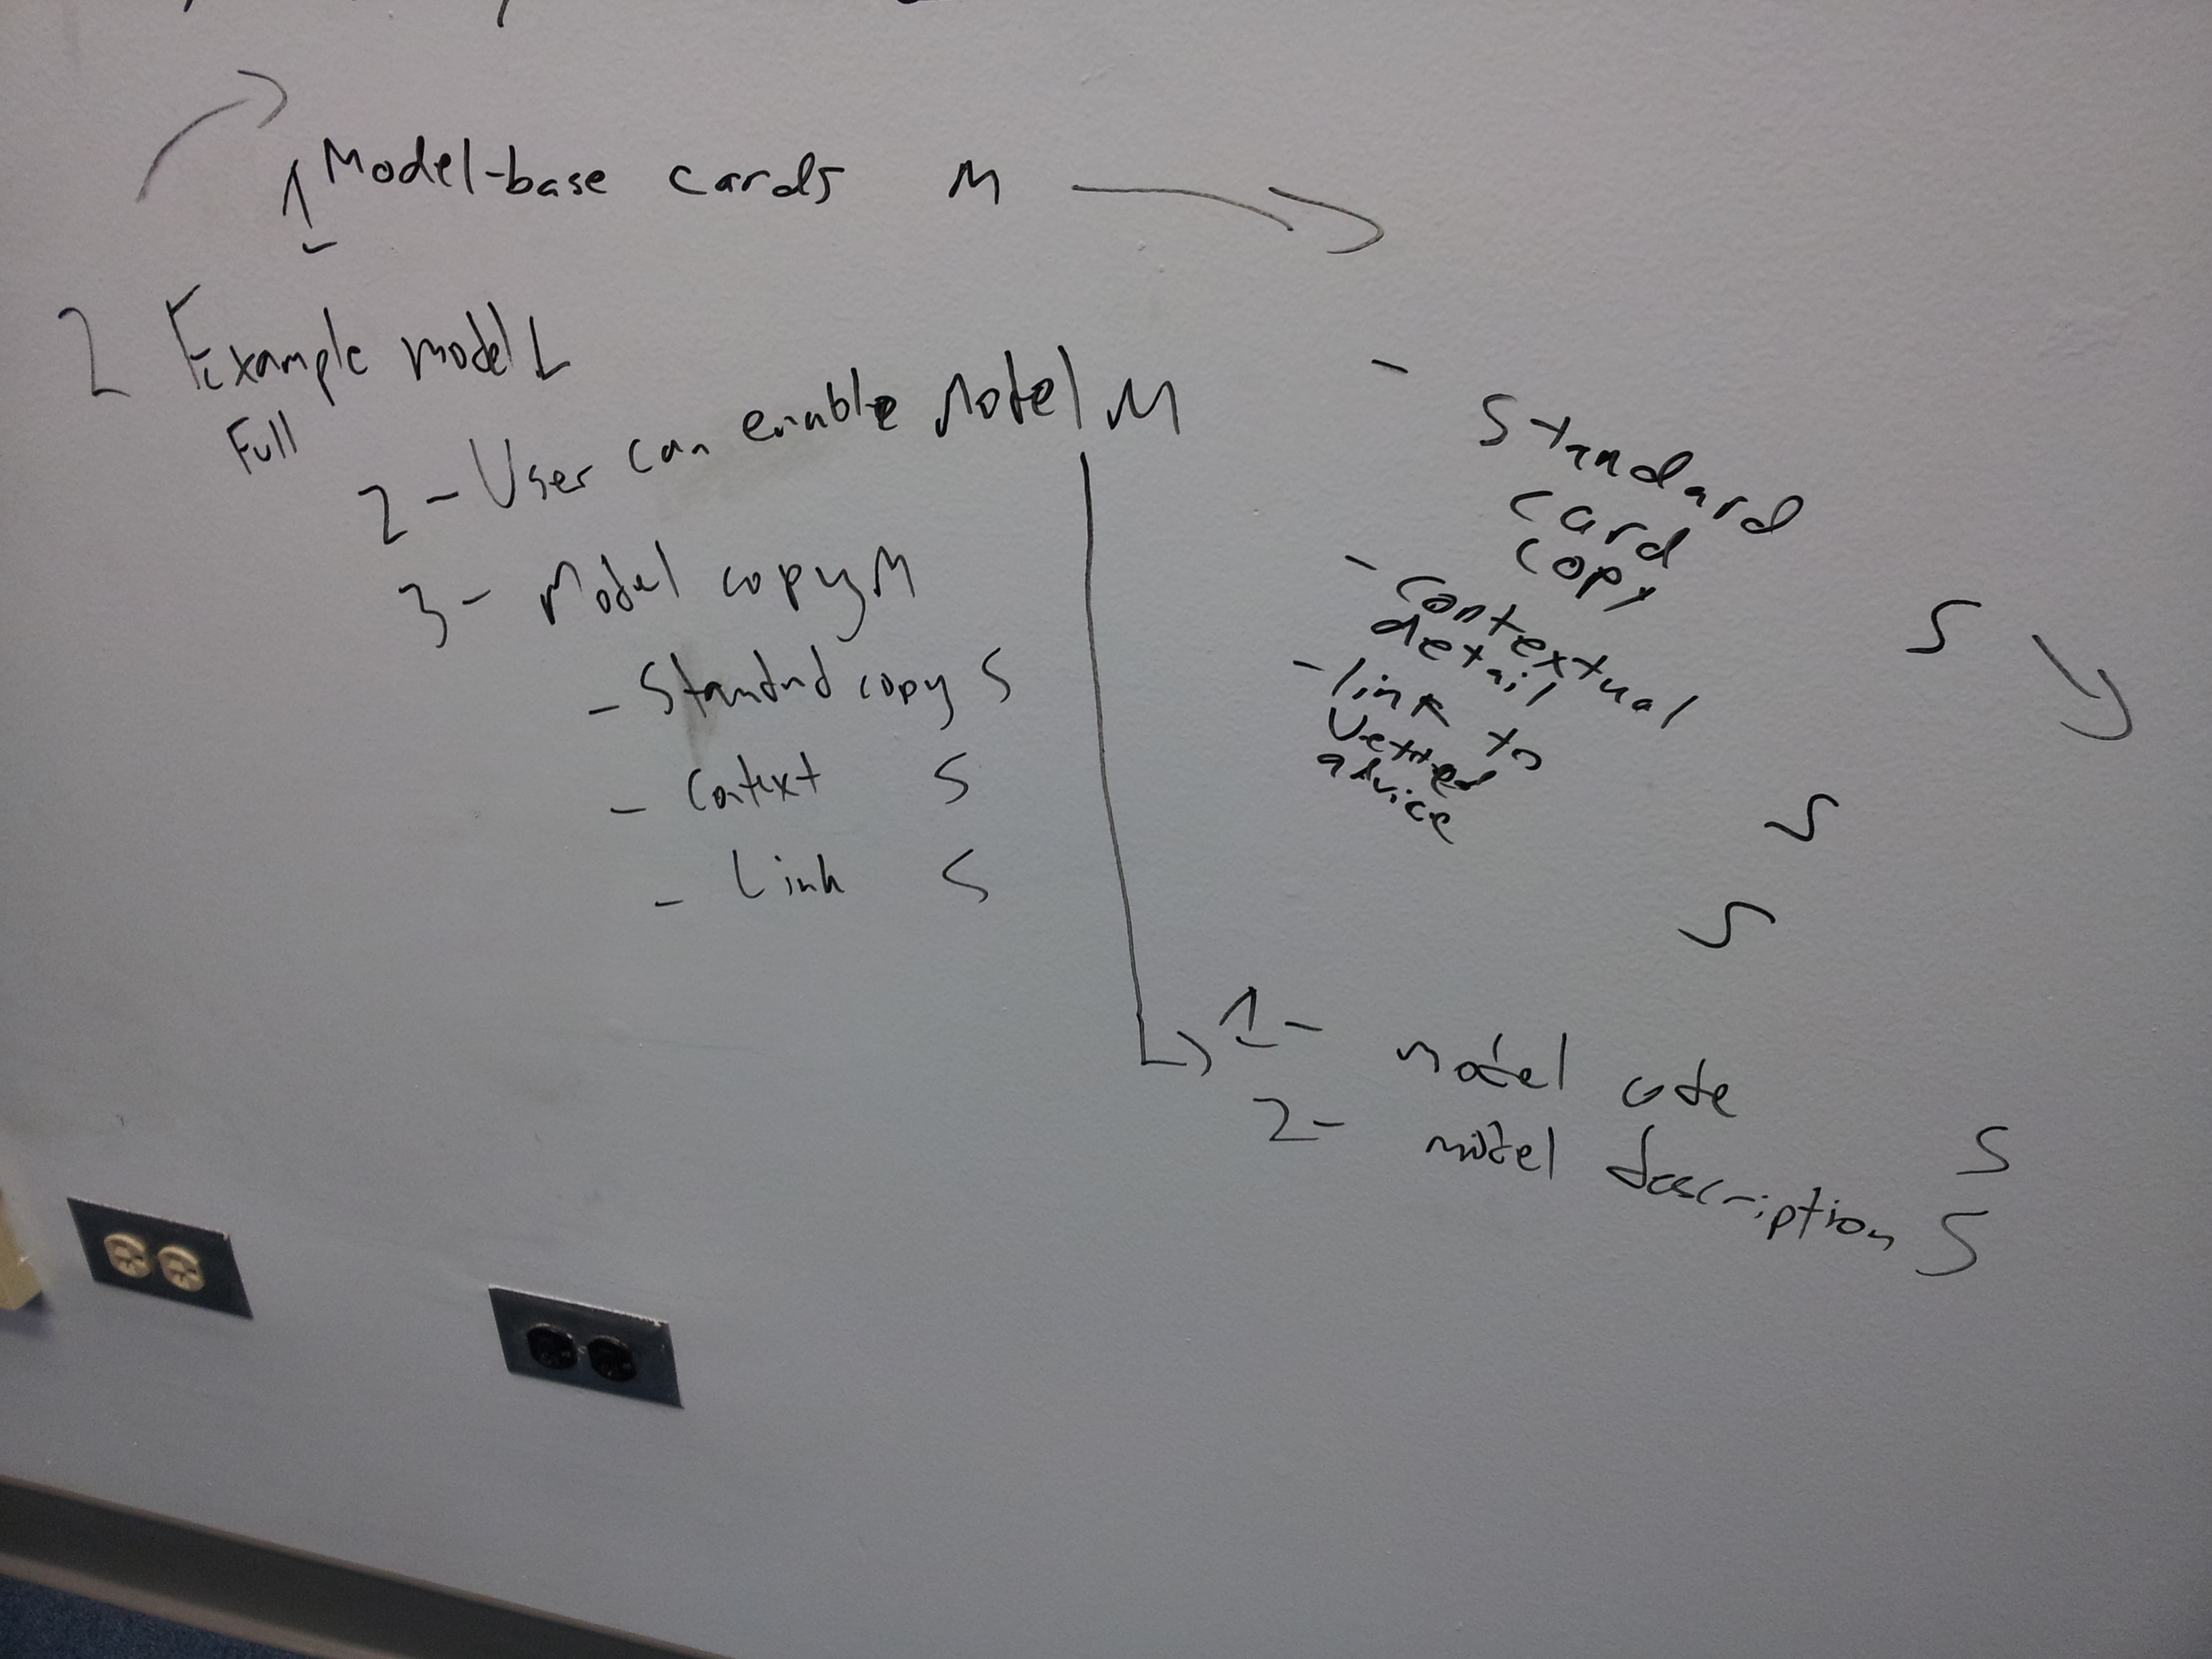 1 Model-base cards M
2 Example model L
Full
2 - User can enable Model M
3 - Model copy M
- Standard copy S
- Context S
- Link S
- Standard
card
copy S
- contextual
detail S
- link to
vetted
advice S
1 - model code S
2 - model description S